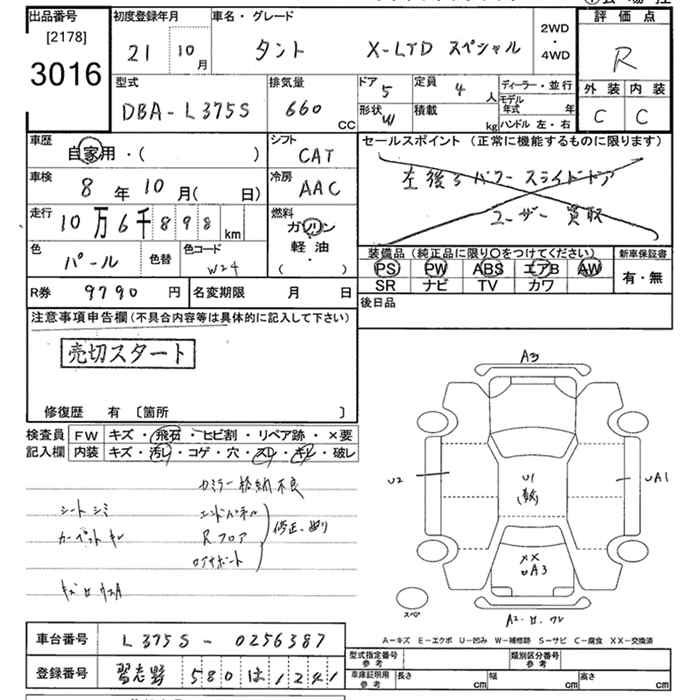 出品番号
[2178]
3016
初度登録年月
21 10月
車名・グレード
タント X-LTD スペシャル
2WD
・
4WD
評価点
R
型式
DBA-L375S
排気量
660 CC
ドア 5
定員 4 人
形状 W
積載 kg
ディーラー・並行
モデル年式 年
ハンドル 左・右
外装 内装
C C
車歴
自家用・( )
シフト
CAT
セールスポイント (正常に機能するものに限ります)
左後ろパワースライドドア
ユーザー買取
車検
8年10月( 日)
冷房
AAC
走行
10万6千898km
燃料
ガソリン
軽油
( ・ )
色
パール
色替
色コード
W24
装備品 (純正品に限り○をつけてください)
PS PW ABS エアB AW
SR ナビ TV カワ
新車保証書
有・無
R券 9790円
名変期限 月 日
後日品
注意事項申告欄 (不具合内容等は具体的に記入して下さい)
売切スタート
修復歴 有 〔箇所 〕
検査員記入欄
FW キズ・飛石・ヒビ割・リペア跡・×要
内装 キズ・汚レ・コゲ・穴・スレ・キレ・破レ
カミラー格納不良
シートシミ
カーペットキレ
エンドパネル
Rフロア
ロアサポート
修正・有り
A3
U2
U1
(多数)
UA1
XX
UA3
スペア
A-キズ E-エクボ U-凹み W-補修跡 S-サビ C-腐食 XX-交換済
車台番号 L375S-0256387
登録番号 習志野 580は1241
型式指定番号 参考
類別区分番号 参考
車庫証明用 参考
長さ cm 幅 cm 高さ cm